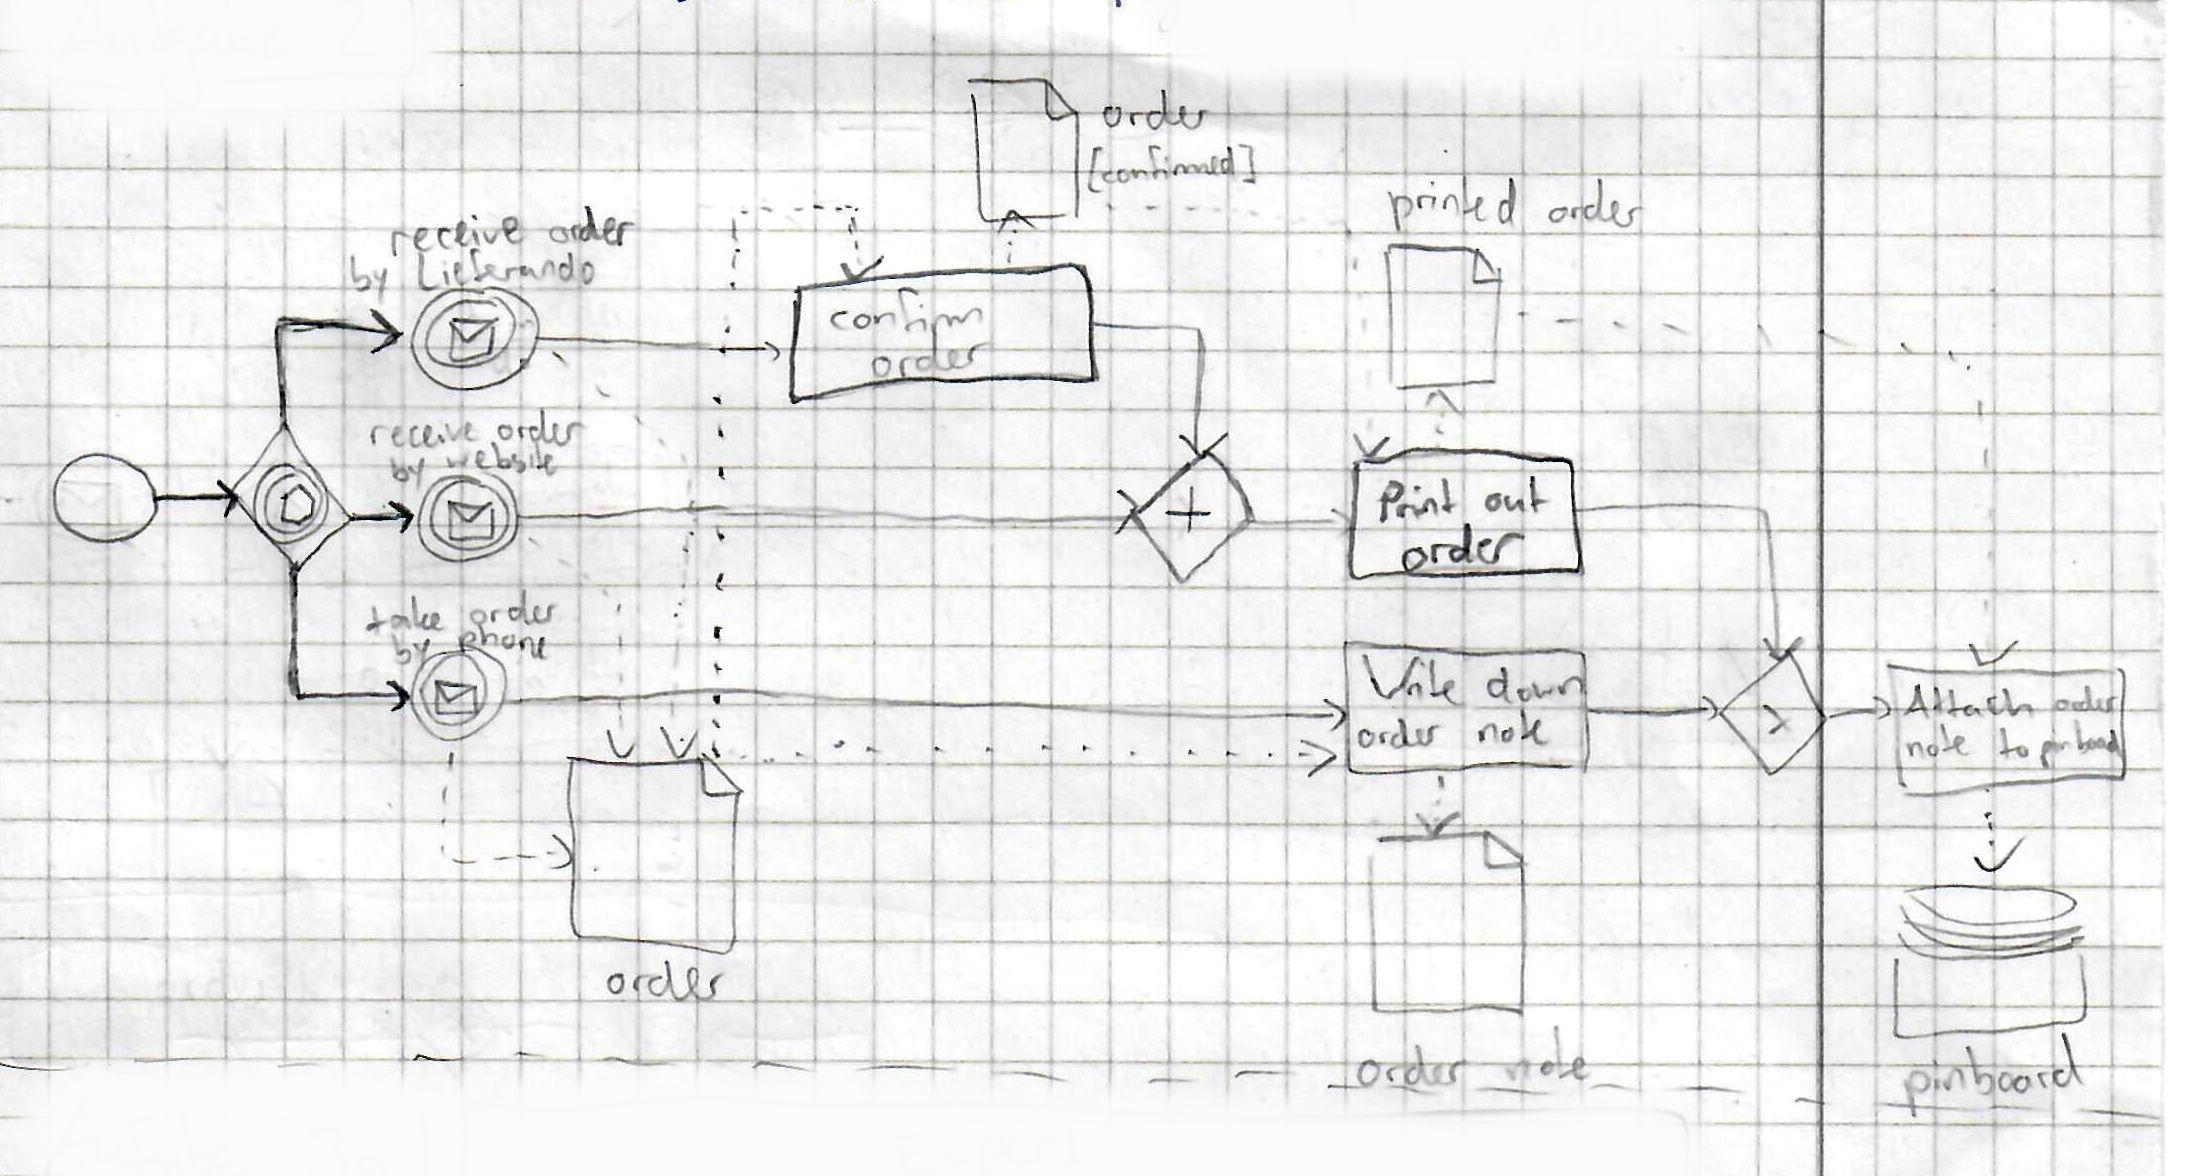 order
[confirmed]
printed order
receive order
by Lieferando
confirm
order
receive order
by website
Print out
order
take order
by phone
Write down
order note
Attach order
note to pinboard
order
order note
pinboard